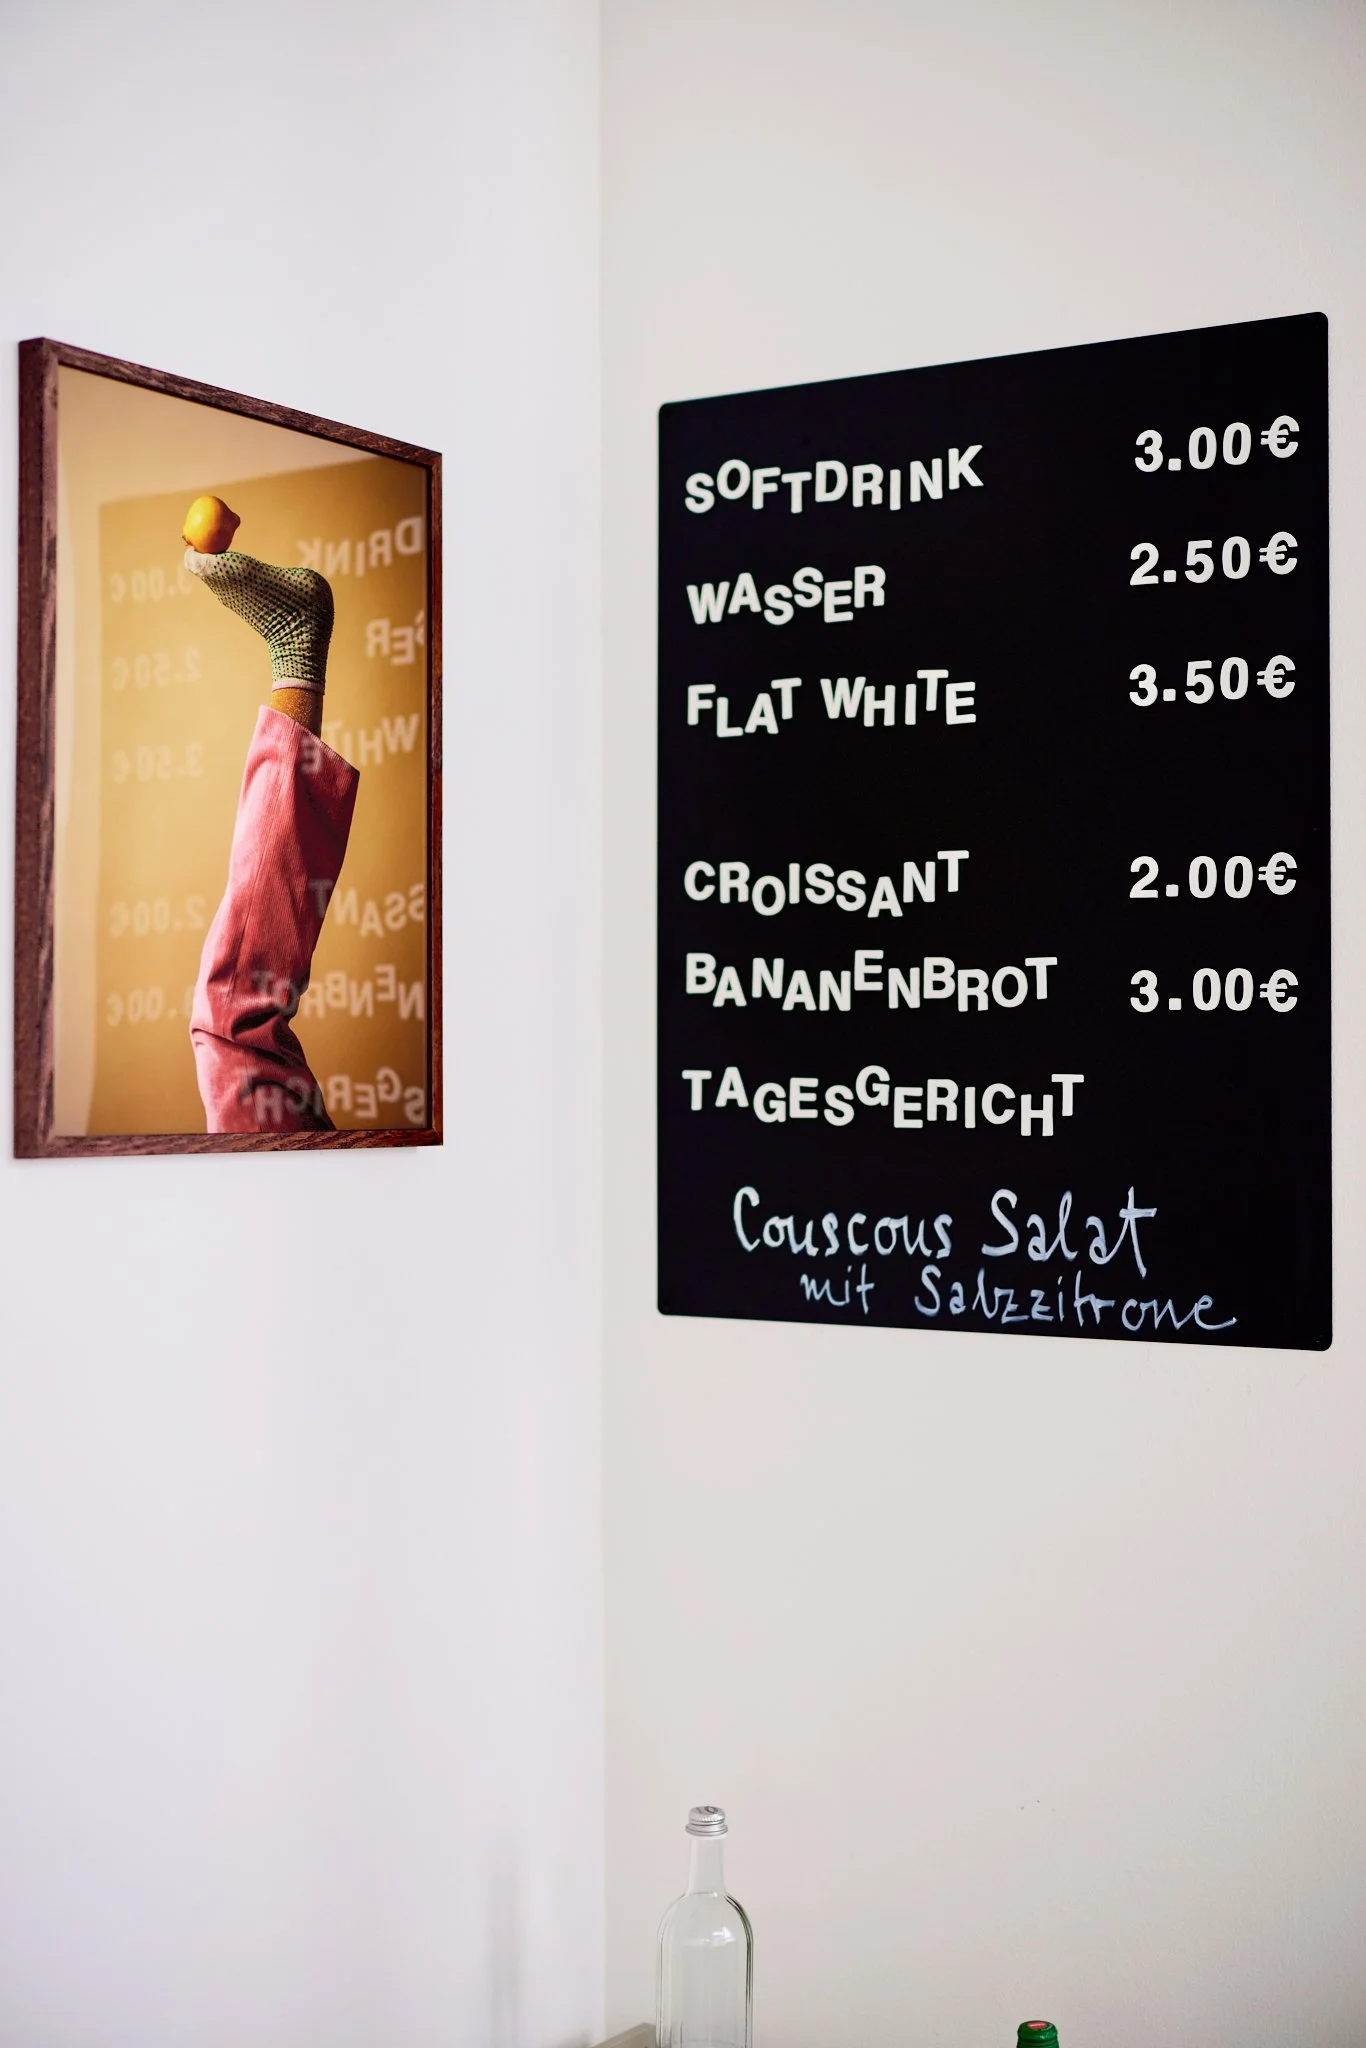 SOFTDRINK 3.00€
WASSER 2.50€
FLAT WHITE 3.50€
CROISSANT 2.00€
BANANENBROT 3.00€
TAGESGERICHT
Couscous Salat
mit Salzzitrone